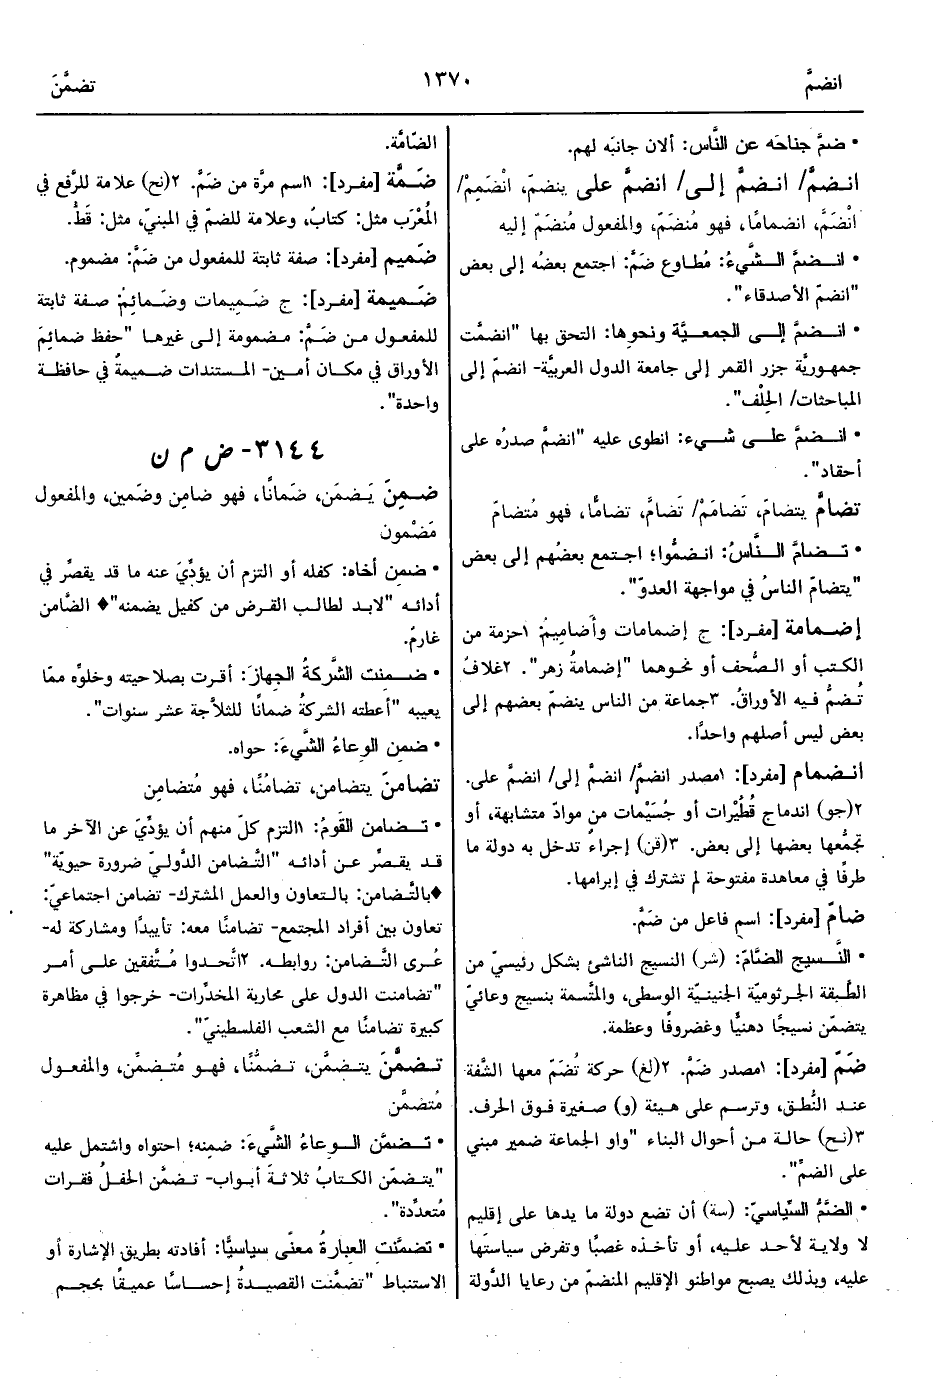 انضمَّ
١٣٧٠
تضمَّنَ
• ضمَّ جناحَه عن النَّاس: ألان جانبَه لهم.
انـضمَّ/ انـضمَّ إلـى/ انضمَّ على ينضمّ، انْضَمِمْ/
انْضَمَّ، انضمامًا، فهو مُنضَمّ، والمفعول مُنضَمّ إليه
• انـضمَّ الـشَّيءُ: مُطاوع ضَمَّ: اجتمع بعضُه إلى بعض
"انضمّ الأصدقاء".
• انـضمَّ إلـى الجمعيَّة ونحوها: التحق بها "انضمَّت
جمهوريَّة جزر القمر إلى جامعة الدول العربيَّة- انضمّ إلى
المباحثات/ الحِلْف".
• انـضمَّ علـى شـيء: انطوى عليه "انضمَّ صدرُه على
أحقاد".
تضامَّ يتضامّ، تَضامَمْ/ تَضامَّ، تضامًّا، فهو مُتضامّ
• تـضامَّ الـنَّاسُ: انـضمُّوا؛ اجـتمع بعضُهم إلى بعض
"يتضامّ الناسُ في مواجهة العدوّ".
إضـمامة [مفرد]: ج إضمامات وأضاميمُ: ١حزمة من
الكتب أو الصُّحف أو نحوهما "إضمامةُ زهر". ٢غلافٌ
تُضمُّ فيه الأوراقُ. ٣جماعة من الناس ينضمّ بعضهم إلى
بعض ليس أصلهم واحدًا.
انـضمام [مفرد]: ١مصدر انضمَّ/ انضمَّ إلى/ انضمَّ على.
٢(جو) اندماج قُطَيْرات أو جُسَيْمات من موادّ متشابهة، أو
تجمُّعها بعضها إلى بعض. ٣(قن) إجراء تدخل به دولة ما
طرفًا في معاهدة مفتوحة لم تشترك في إبرامها.
ضامّ [مفرد]: اسم فاعل من ضَمَّ.
• النَّسيج الضَّامّ: (شر) النسيج الناشئ بشكل رئيسيّ من
الطَّبقة الجرثوميَّة الجنينيَّة الوسطى، والمتَّسمة بنسيج وعائيّ
يتضمّن نسيجًا دهنيًّا وغضروفًا وعظمة.
ضَمّ [مفرد]: ١مصدر ضَمَّ. ٢(لغ) حركة تُضَمّ معها الشَّفة
عـند النُّطق، وترسم على هيئة (و) صغيرة فوق الحرف.
٣(نـح) حالـة مـن أحوال البناء "واو الجماعة ضمير مبني
على الضمّ".
• الضَّمُّ السِّياسيّ: (سة) أن تضع دولة ما يدها على إقليم
لا ولايـة لأحـد علـيه، أو تأخـذه غصبًا وتفرض سياستَها
عليه، وبذلك يصبح مواطنو الإقليم المنضمّ من رعايا الدَّولة
الضَّامَّة.
ضَـمَّة [مفرد]: ١اسم مرَّة من ضَمَّ. ٢(نح) علامة للرَّفع في
المُعْرَب مثل: كتابٌ، وعلامة للضمّ في المبنيّ، مثل: قَطُّ.
ضَميم [مفرد]: صفة ثابتة للمفعول من ضَمَّ: مضموم.
ضَـميمة [مفرد]: ج ضَـميمات وضَـمائمُ: صـفة ثابتة
للمفعول مـن ضَـمَّ: مـضمومة إلـى غيرها "حفظ ضمائمَ
الأوراق في مكان أمين- المـستندات ضـميمةٌ في حافظـة
واحدة".
٣١٤٤- ض م ن
ضـمِنَ يَـضمَن، ضَمانًا، فهو ضامِن وضَمين، والمفعول
مَضْمون
• ضمِن أخاه: كفله أو التزم أن يؤدِّيَ عنه ما قد يقصِّر في
أدائـه "لابد لطالب القرض من كفيل يضمنه"♦ الضَّامن
غارمٌ.
• ضـمِنت الشَّركةُ الجهازَ: أقـرت بصلاحيته وخلوِّه ممّا
يعيبه "أعطته الشركةُ ضمانًا للثلاَّجة عشر سنوات".
• ضمِن الوعاءُ الشَّيءَ: حواه.
تضامنَ يتضامن، تضامُنًا، فهو مُتضامِن
• تـضامن القَومُ: ١التزم كلّ منهم أن يؤدِّيَ عن الآخر ما
قد يقـصِّر عـن أدائـه "التَّضامن الدَّوليّ ضرورة حيويَّة"
♦بالتَّضامن: بالـتعاون والعمل المشترك- تضامن اجتماعيّ:
تعاون بين أفراد المجتمع- تضامنًا معه: تأييدًا ومشاركة له-
عُـرى التَّـضامن: روابطـه. ٢اتَّحدوا مُـتَّفقين علـى أمر
"تضامنت الدول على محاربة المخدّرات- خرجوا في مظاهرة
كبيرة تضامنًا مع الشعب الفلسطينيّ".
تـضمَّنَ يتـضمَّن، تـضمُّنًا، فهـو مُتـضمِّن، والمفعـول
مُتضمَّن
• تـضمَّن الـوعـاءُ الشَّيءَ: ضمِنه؛ احتواه واشتمل عليه
"يتـضمّن الكتابُ ثلاثـةَ أبـواب- تـضمَّن الحفلُ فقرات
مُتعدِّدة".
• تضمَّنت العبارةُ معنًى سياسيًّا: أفادته بطريق الإشارة أو
الاستنباط "تضمَّنت القصيدةُ إحساسًا عميقًا بحجم